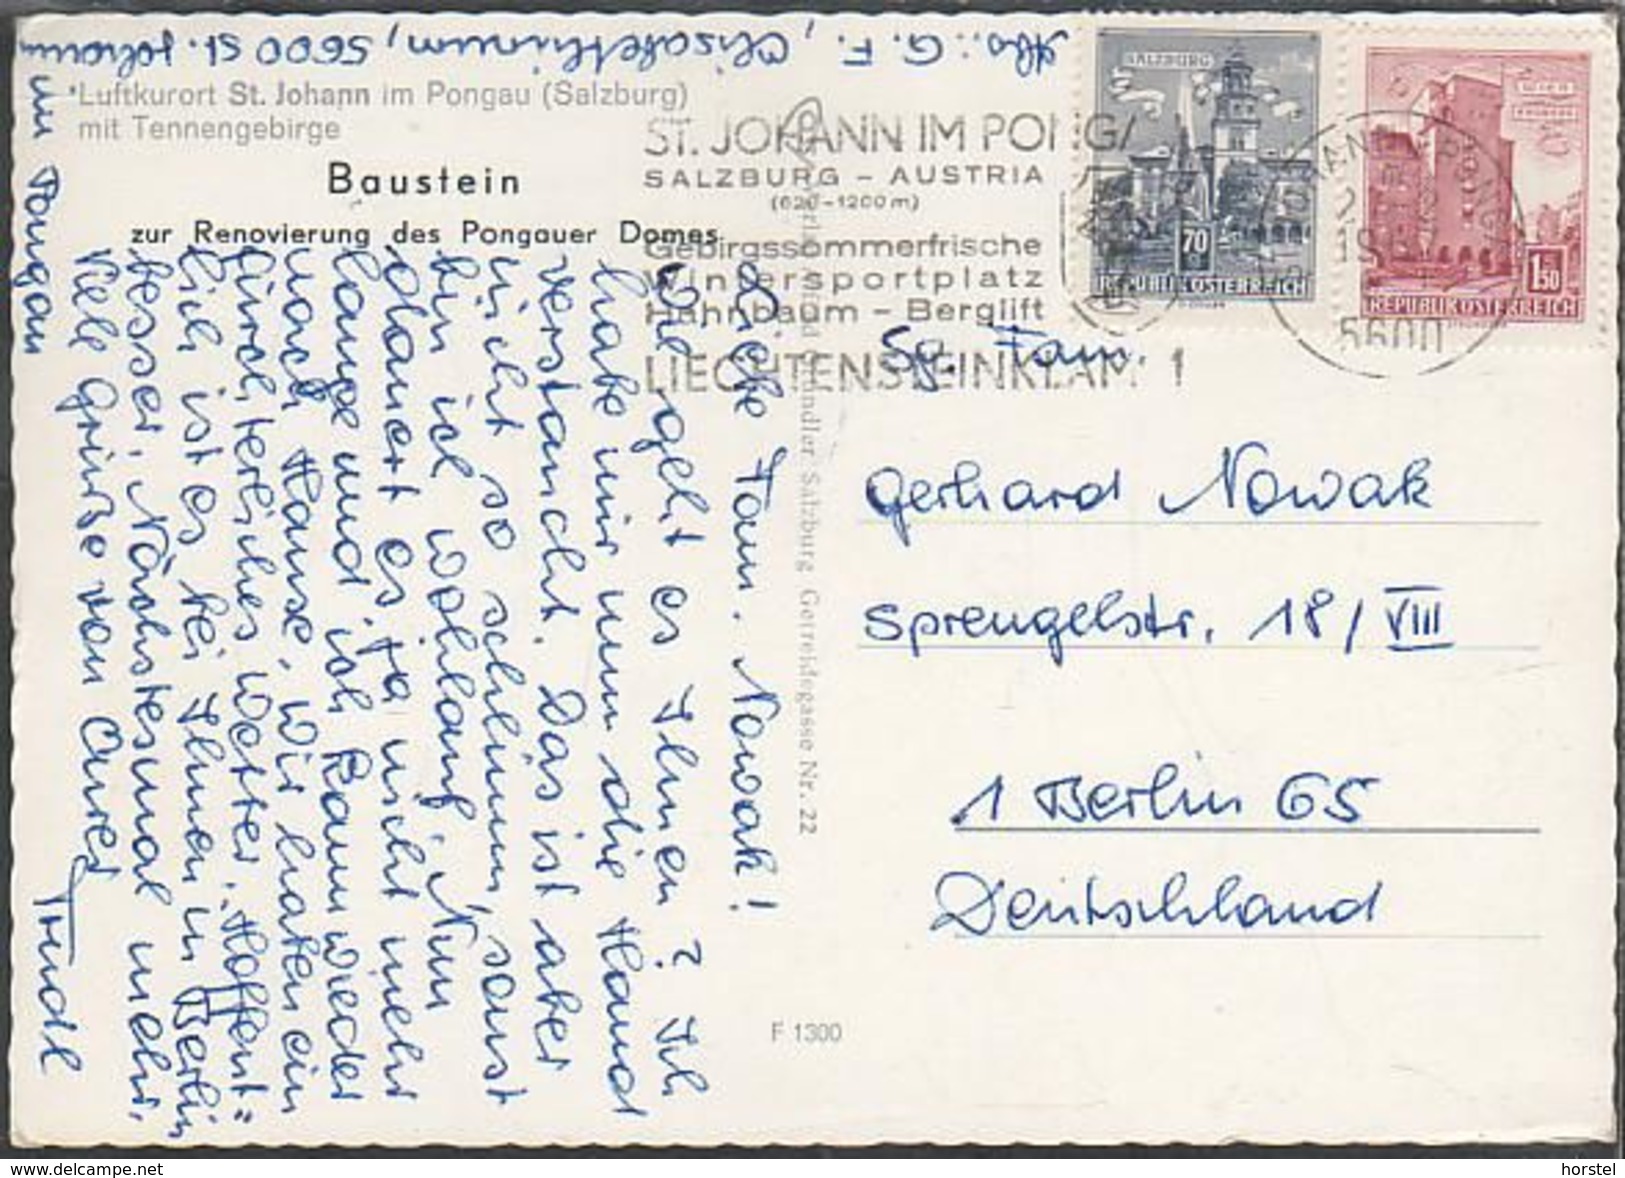 Abs.: G. F., Elisabethinum, 5600 St. Johann
im Pongau
Luftkurort St. Johann im Pongau (Salzburg)
mit Tennengebirge
Baustein
zur Renovierung des Pongauer Domes
ST. JOHANN IM PONG
SALZBURG – AUSTRIA
(620–1200m)
Gebirgssommerfrische
Wintersportplatz
Hahnbaum – Berglift
LIECHTENSTEINKLAMM 1
SALZBURG
70
REPUBLIK ÖSTERREICH
WIEN
1.50
REPUBLIK ÖSTERREICH
5600
Liebe Fam. Nowak!
Wie geht es Ihnen? Ich
habe mir nun die Hand
verstaucht. Das ist aber
nicht so schlimm, sonst
bin ich wohlauf. Nun
dauert es ja nicht mehr
lange und ich kann wieder
nach Hause. Wir hatten ein
fürchterliches Wetter. Hoffent=
lich ist es bei Ihnen in Berlin
besser. Nächstesmal mehr.
Viele Grüße von Eurer
Trudl
Gründler Salzburg Getreidegasse Nr. 22
Sg. Fam.
Gerhard Nowak
Sprengelstr. 18/VIII
1 Berlin 65
Deutschland
F 1300
www.delcampe.net
horstel